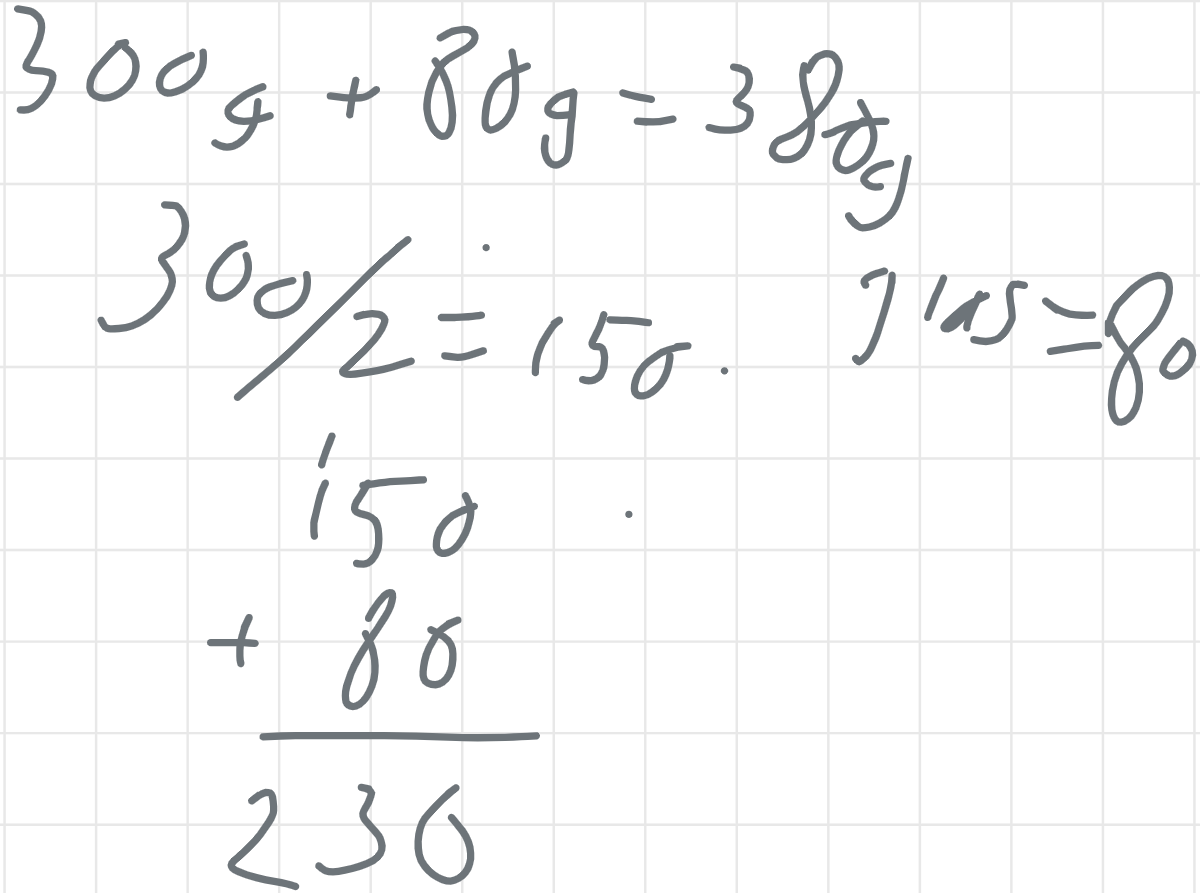 300g + 80g = 380g
300/2 = 150. glas = 80
1
150
+ 80
230